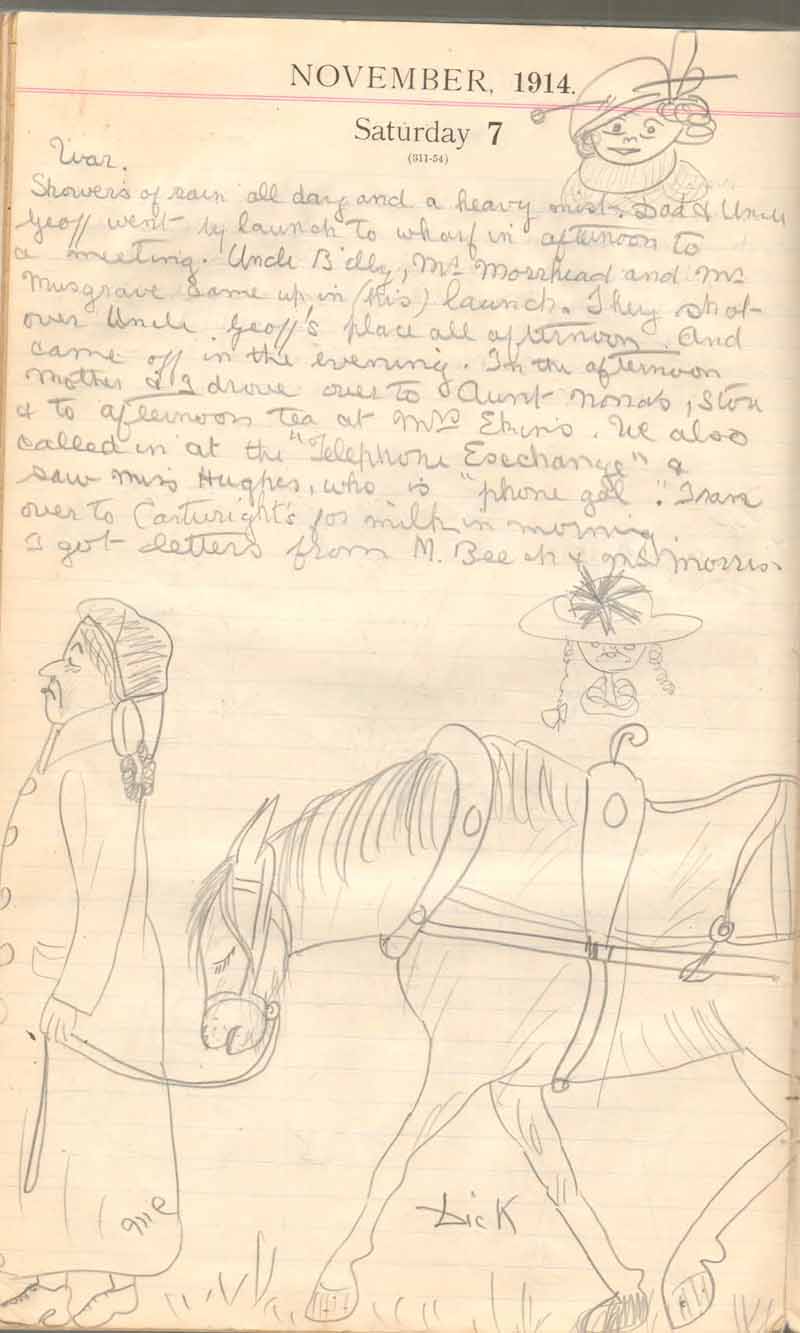 NOVEMBER, 1914.
Saturday 7
(311-54)
War.
Showers of rain all day and a heavy mist. Dad & Uncle
Geoff went by launch to wharf in afternoon to
a meeting. Uncle Billy, Mr Morrhead and Mr
Musgrave came up in (his) launch. They shot
over Uncle Geoff's place all afternoon. And
came off in the evening. In the afternoon
Mother & I drove over to Aunt Nona's, Store
& to afternoon tea at Mrs Ekins. We also
called in at the "Telephone Esechange" &
saw Miss Hughes, who is "phone gal". I ran
over to Cartwright's for milk in morning.
I got letters from M. Beech & Morris
me
Dick